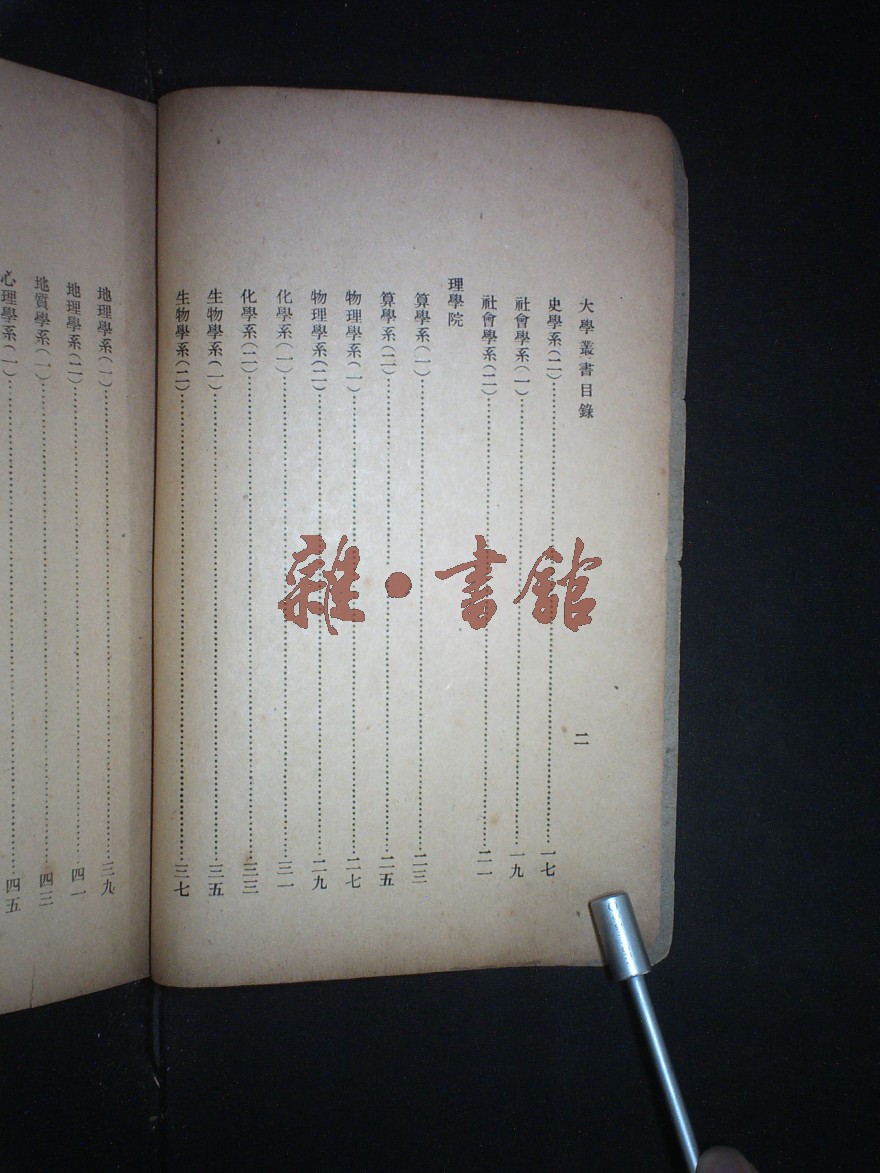 大學叢書目錄
二
史學系(二)……一七
社會學系(一)……一九
社會學系(二)……二一
理學院
算學系(一)……二三
算學系(二)……二五
物理學系(一)……二七
物理學系(二)……二九
化學系(一)……三一
化學系(二)……三三
生物學系(一)……三五
生物學系(二)……三七
地理學系(一)……三九
地理學系(二)……四一
地質學系(一)……四三
心理學系(一)……四五
雜·書館